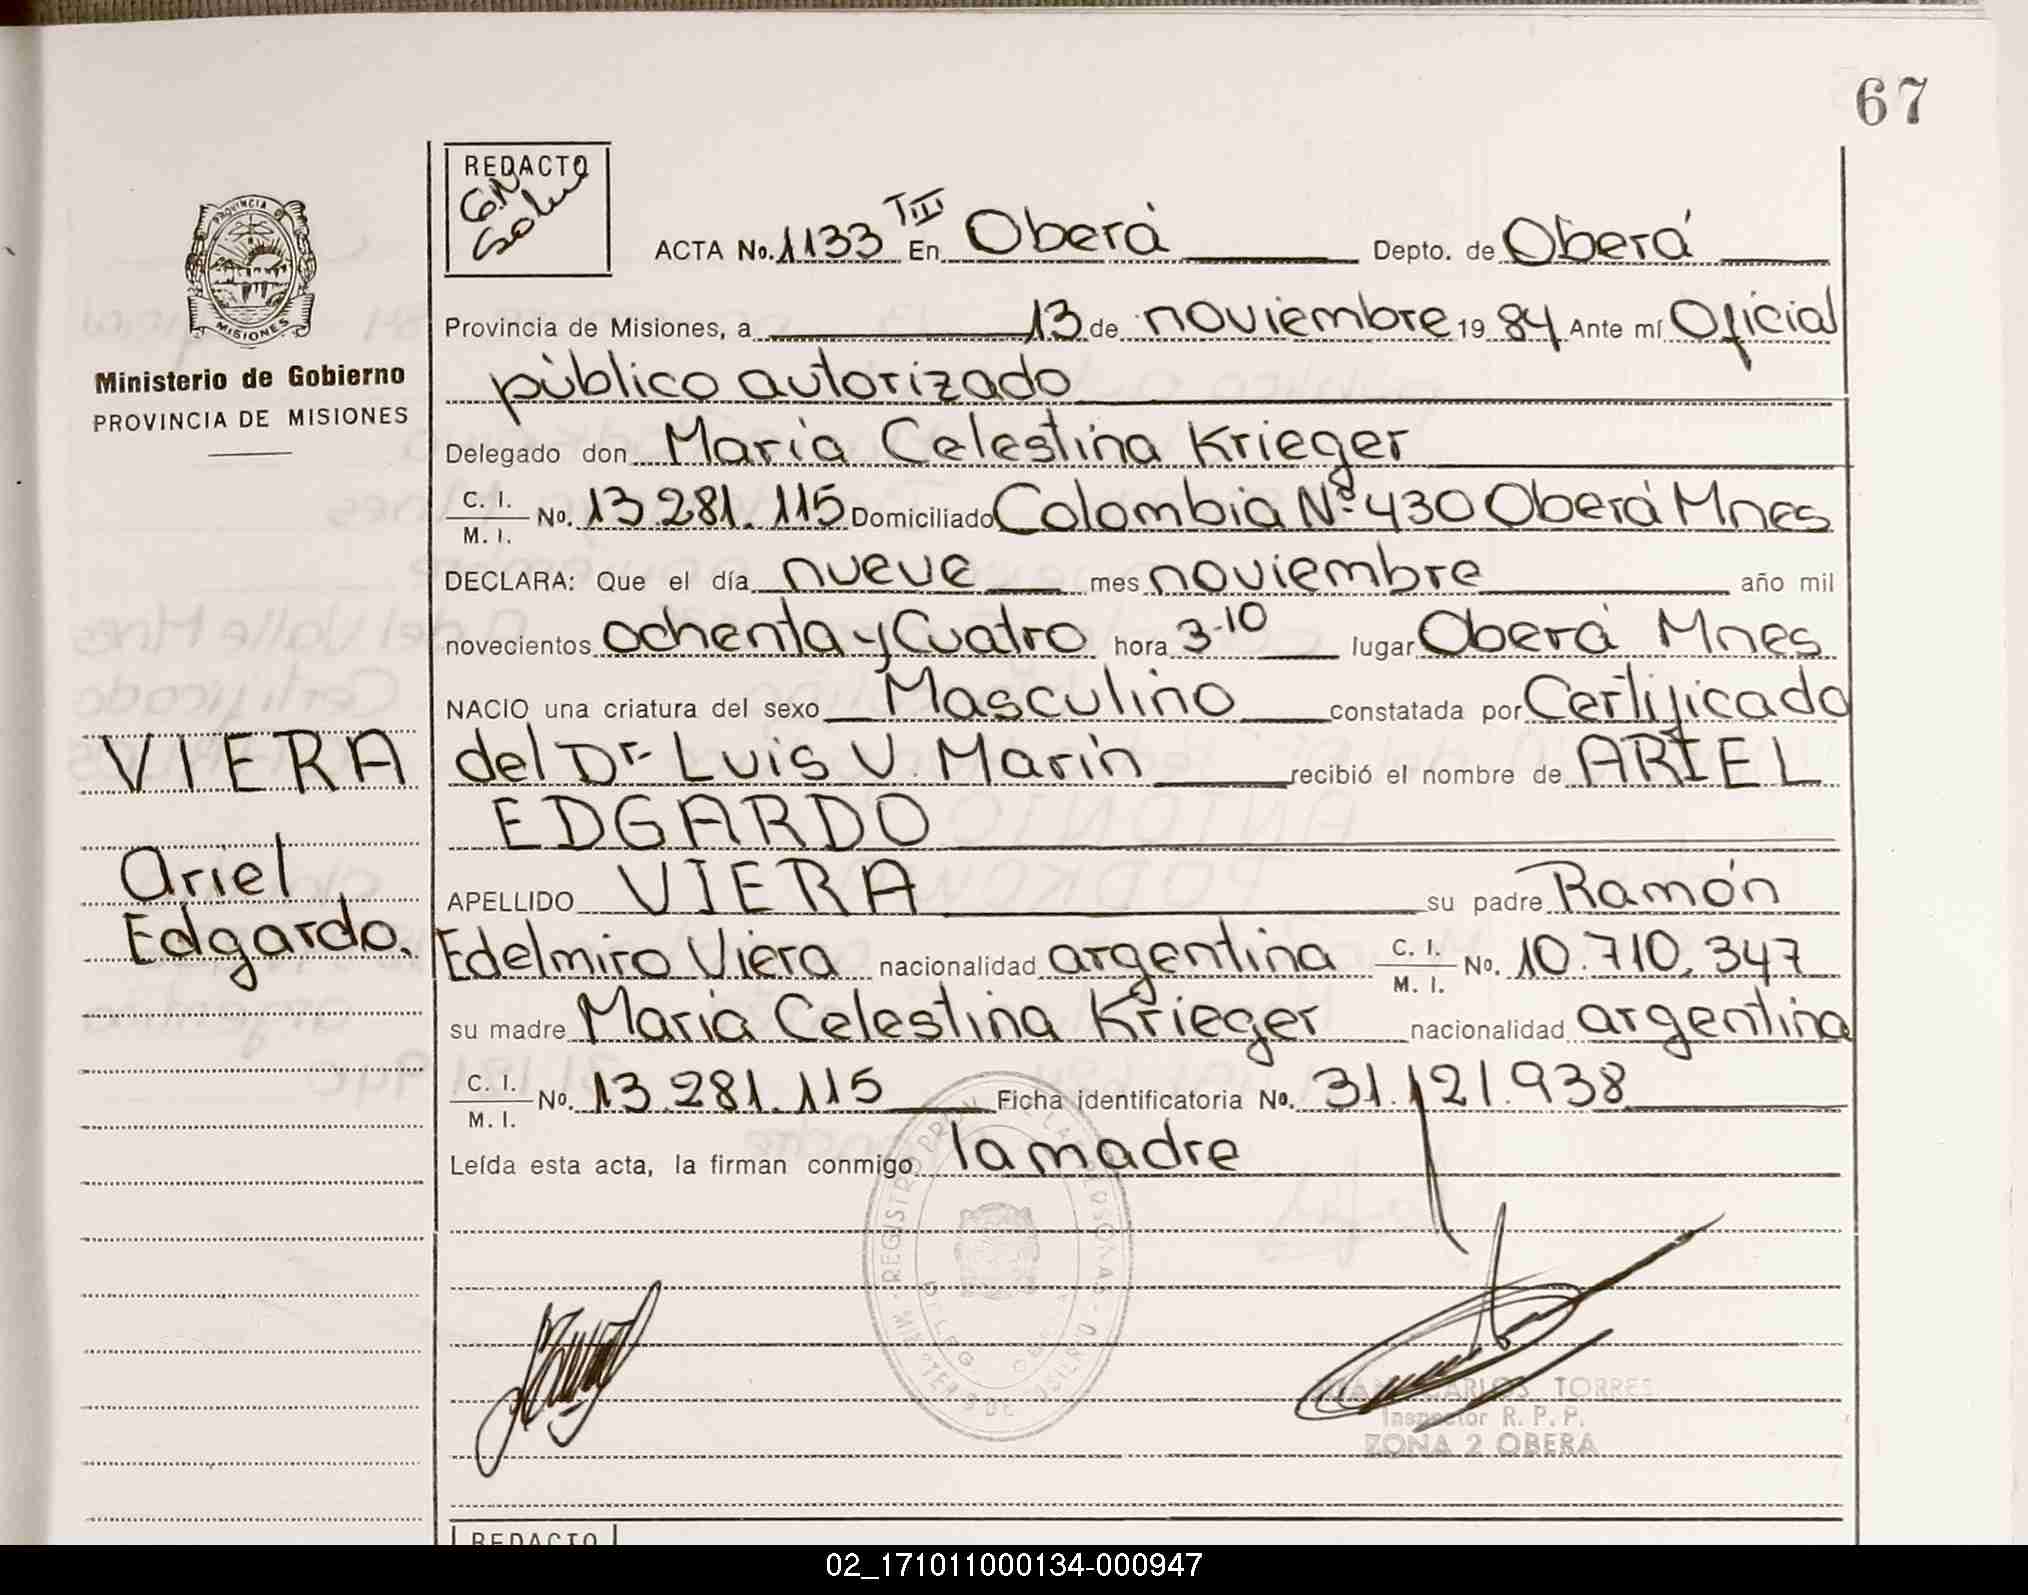 67
REDACTO
ACTA No. 1133 TIII En Oberá Depto. de Oberá
PROVINCIA DE
MISIONES
Provincia de Misiones, a 13 de noviembre 1984 Ante mí Oficial
Ministerio de Gobierno
PROVINCIA DE MISIONES
público autorizado
Delegado don María Celestina Krieger
C. I. M. I. No. 13.281.115 Domiciliado Colombia Nº 430 Oberá Mnes
DECLARA: Que el día nueve mes noviembre año mil
novecientos ochenta y Cuatro hora 3-10 lugar Oberá Mnes
NACIO una criatura del sexo Masculino constatada por Certificado
VIERA
del Dr. Luis V. Marín recibió el nombre de ARIEL
EDGARDO
Ariel
Edgardo.
APELLIDO VIERA su padre Ramón
Edelmiro Viera nacionalidad argentina C. I. M. I. No. 10.710.347
su madre María Celestina Krieger nacionalidad argentina
C. I. M. I. No. 13.281.115 Ficha identificatoria No. 31.121.938
Leída esta acta, la firman conmigo la madre
JUAN CARLOS TORRES
Inspector R. P. P.
ZONA 2 OBERA
REDACTO
02_171011000134-000947